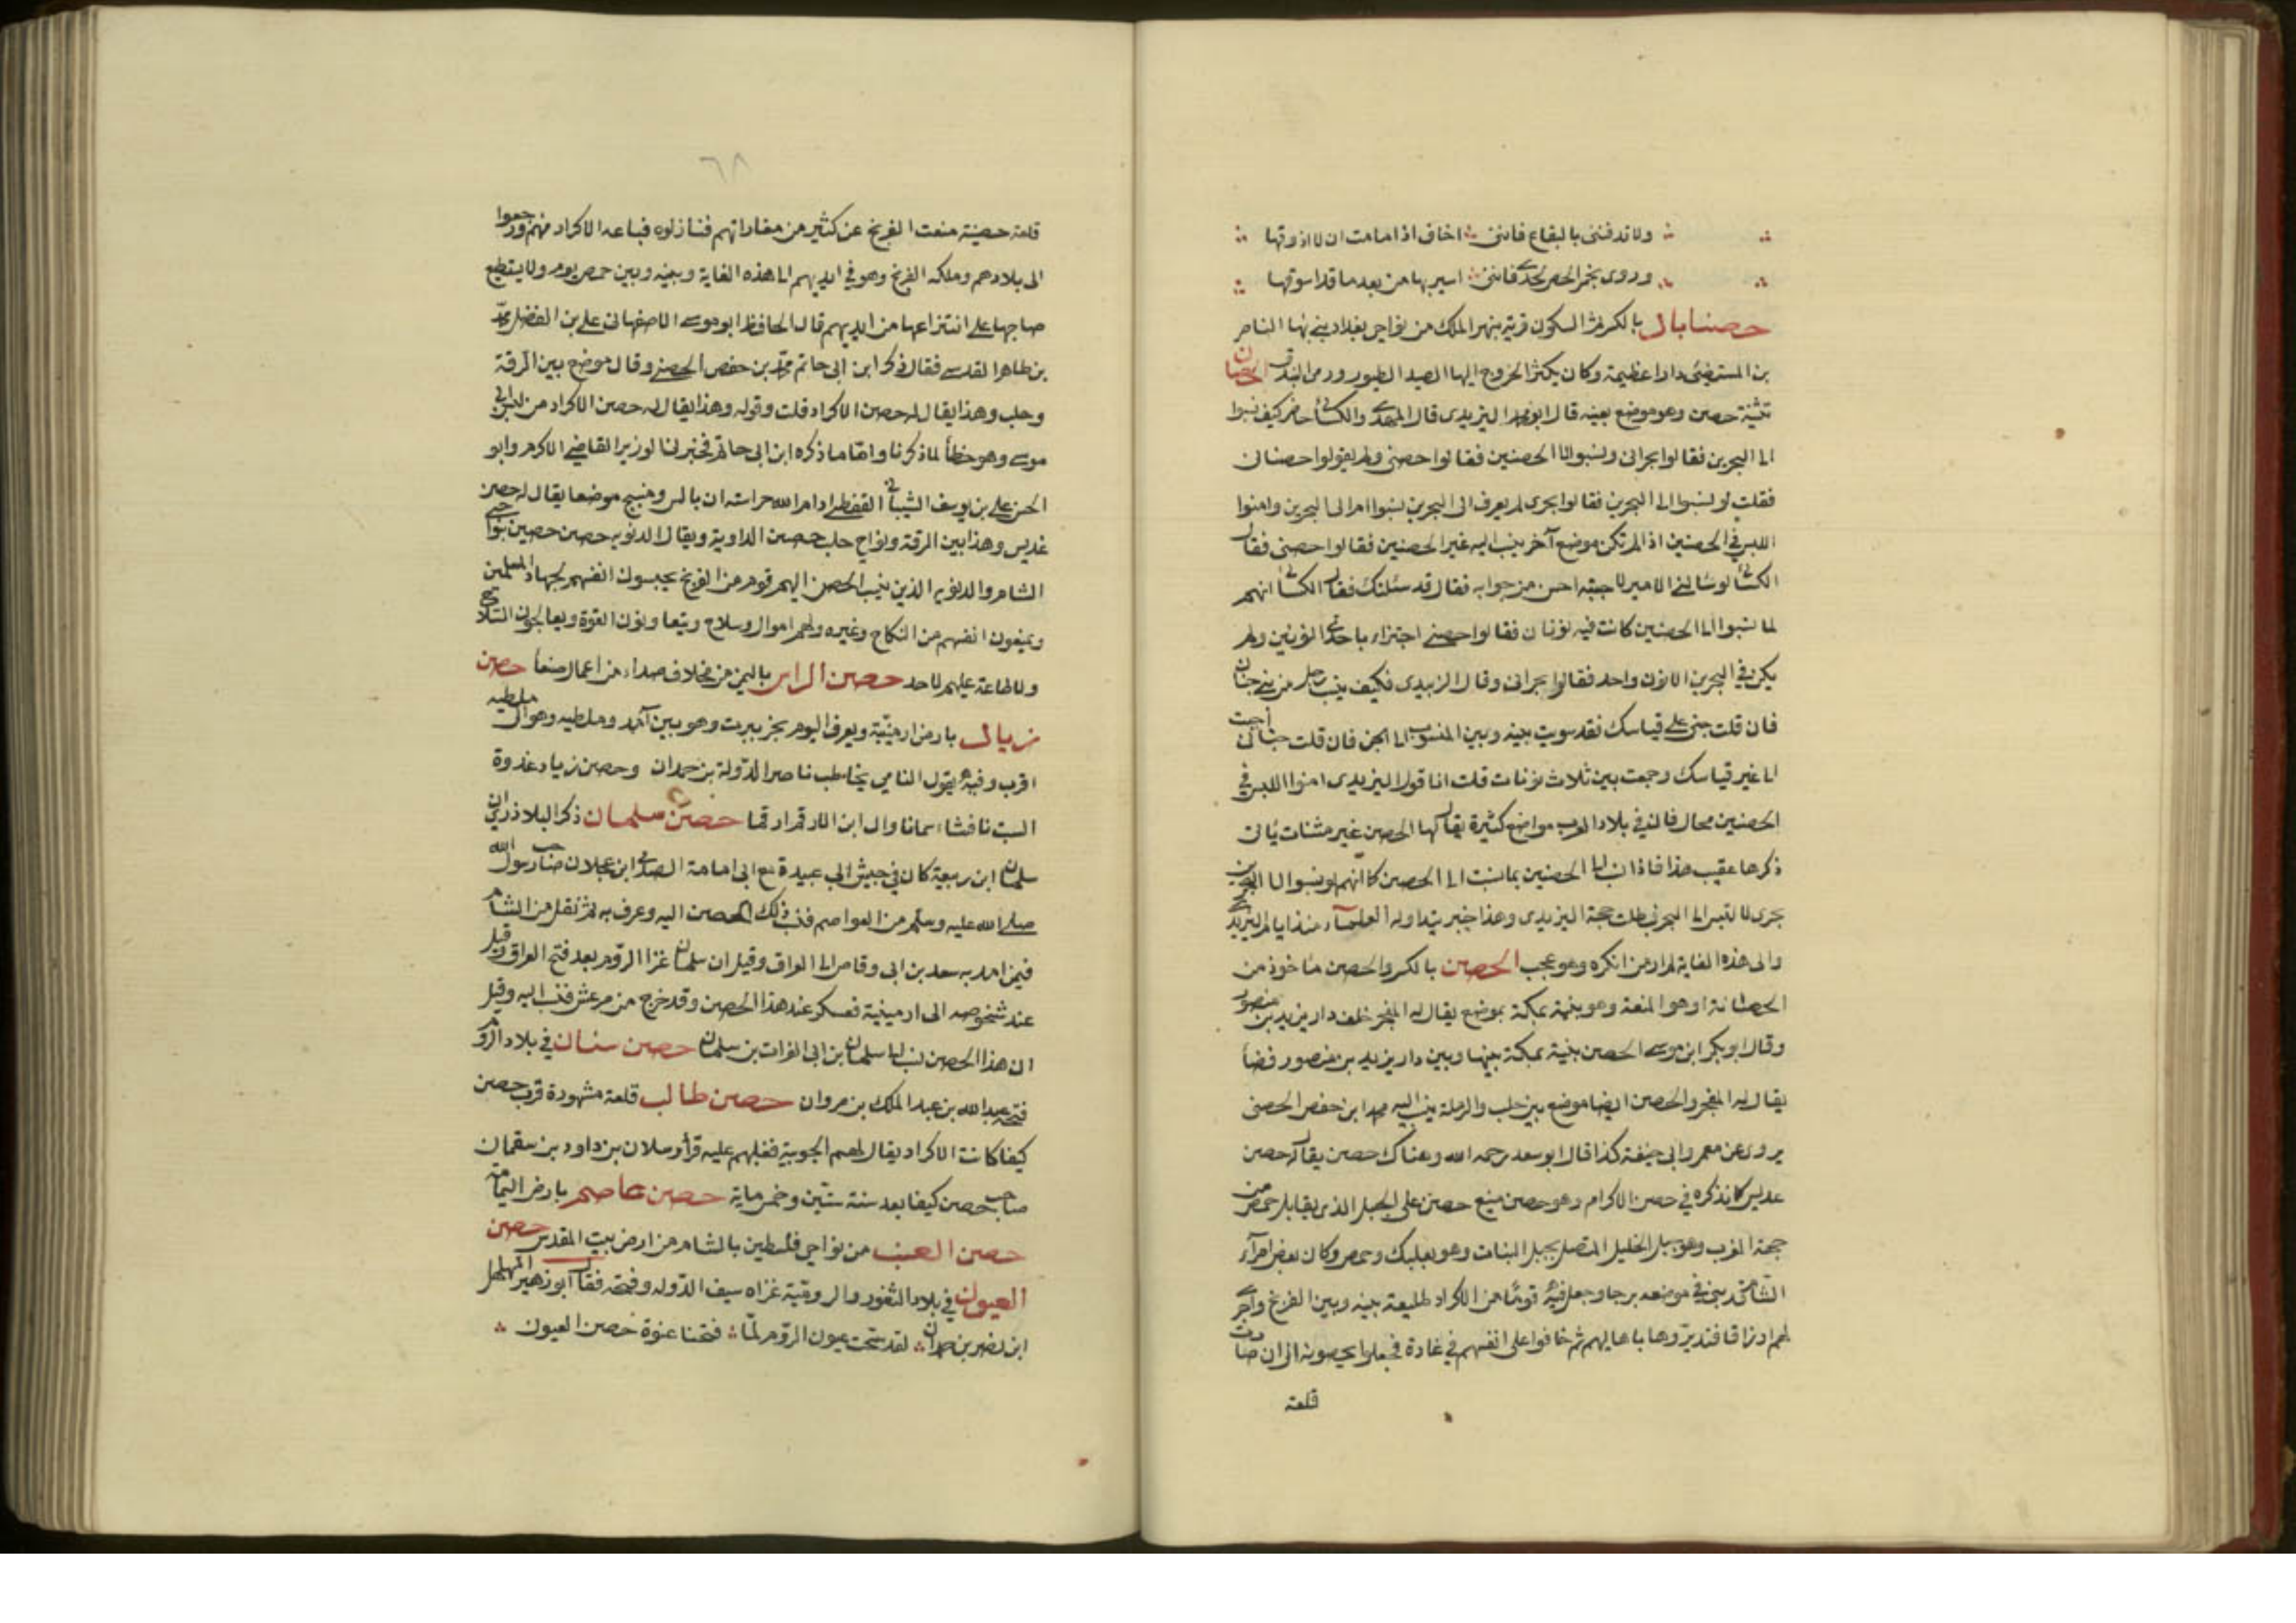 ولا تدفننى بالبقاع فاننى اخاف اذا ما مت ان لا اذوقها
وروى بخمر الحص لحدى فاننى اسير بها من بعد ما قد اسوقها
حصنابال بالكسر ثم السكون قرية بنهر الملك من نواحى بغداد بنى بها الناصر
بن المستضئ دارا عظيمة وكان يكثر الخروج اليها الصيد الطيور ورمى البندق الحصنان
تثنية حصن وهو موضع بعينه قال ابو محمد اليزيدى قال المهدى والكسائى حاضر كيف نسبوا
الى البحرين فقالوا بحرانى ونسبوا الى الحصنين فقالوا حصنى ولم يقولوا حصنانى
فقلت لو نسبوا الى البحرين فقالوا بحرى لم يعرف الى البحرين نسبوا ام الى البحرين وامنوا
اللبس فى الحصنين اذ لم تكن موضع آخر ينسب اليه غير الحصنين فقالوا حصنى فقال
الكسائى لو سالنى الامير لاجبته احسن من جوابه فقال قد سئلتك فقال الكسائى انهم
لما نسبوا الى الحصنين كانت فيه نونان فقالوا حصنى اجتزاء باحدى النونين ولم
يكن فى البحرين الا نون واحد فقالوا بحرانى وقال الزبيدى فكيف ينسب رجل من بنى جنان
فان قلت جنى على قياسك فقد سويت بينه وبين المنسوب الى الجن فان قلت جنانى
الى غير قياسك وجمعت بين ثلاث نونات قلت انا قول اليزيدى امنوا اللبس فى
الحصنين محال فان فى بلاد العرب مواضع كثيرة يقال لها الحصن غير مثنات ياتى
ذكرها عقيب هذا فاذا نسب الى الحصنين بما نسب الى الحصن كانهم لو نسبوا الى البحرين
بحرى لالتبس الى البحر بطلت حجة اليزيدى وهذا خبر يتداوله العلماء منذ ايام اليزيدى
والى هذه الغاية لم ار من انكره وهو عجب الحصن بالكسر والحصن ماخوذ من
الحصانة وهو المنعة وهو بثنية بمكة بموضع يقال له المفجر خلف دار يزيد بن منصور
وقال ابو بكر ابن موسى الحصن بثنية بمكة بينها وبين دار يزيد بن منصور فضا
يقال له المفجر والحصن ايضا موضع بين حلب والرملة ينسب اليه محمد ابن حفص الحصنى
يروى عن معمر وابى حنيفة كذا قال ابو سعد رحمه الله وهناك حصن يقال له حصن
عديس كا نذكره فى حصن الاكرام وهو حصن منيع حصين على الجبل الذى يقابل حمص من
جهة الغرب وهو جبل الخليل المتصل بجبل البنات وهو بعلبك وحمص وكان بعض امرآء
الشام قد بنى فى موضعه برجا وجعل فيه قوما من الاكراد طليعة بينه وبين الفرنج واجرى
لهم ارزاقا فتديروها باهاليهم ثم خافوا على انفسهم فى غارة فجعلوا يحصونه الى ان صارت
قلعة
٦٨
قلعة حصينة منعت الفرنج عن كثير من مغاراتهم فنازلوه فباعه الاكراد منهم ورجعوا
الى بلادهم وملكه الفرنج وهو فى ايديهم الى هذه الغاية وبينه وبين حمص يوم ولا يستطيع
صاحبها على انتزاعها من ايديهم قال الحافظ ابو موسى الاصفهانى على بن الفضل محمد
بن طاهر المقدسى فقال ذكر ابن ابى حاتم محمد بن حفص الحصنى وقال موضع بين الرقة
وحلب وهذا يقال له حصن الاكراد قلت وقوله وهذا يقال له حصن الاكراد من لدن ابى
موسى وهو خطأ لما ذكرنا واما ما ذكره ابن ابى حاتم فخبرنا الوزير القاضى الاكرم وابو
الحسن على بن يوسف الشيبانى القفطى ادام الله حراسته ان بالس ومنبج موضعا يقال له حصن
عديس وهذا بين الرقة ونواحى حلب حصن الداوية ويقال الديويه حصن حصين بنواحى
الشام والديويه الذين ينسب الحصن اليهم قوم من الفرنج يحبسون انفسهم لجهاد المسلمين
ويمنعون انفسهم من النكاح وغيره ولهم اموال وسلاح ويتعانون القوة ويعالجون السلاح
ولا طاعة عليهم لاحد حصن الراس باليمن من مخلاف صداء من اعمال صنعا حصن
زيال بارض ارمينية ويعرف اليوم بخرتبرت وهو بين آمد وملطيه وهو الى ملطيه
اقرب وفيه يقول النامى يخاطب ناصر الدولة بن حمدان وحصن زياد غدوة
السبت نافشا سمانا وال ابن الارقم ارقما حصن سلمان ذكر البلاذرى ان
سلمان ابن ربيعة كان فى جيش ابى عبيدة مع ابى امامة الصدى ابن عجلان صاحب رسول الله
صلى الله عليه وسلم من العواصم فنسب ذلك الحصن اليه وعرف به ثم نقل من الشام
فيمن امد به سعد بن ابى وقاص الى العراق وقيل ان سلمان غزا الروم بعد فتح العراق وقبل
عند شخوصه الى ارمينية فعسكر عند هذا الحصن وقد خرج من مرعش فنسب اليه وقيل
ان هذا الحصن نسب الى سلمان بن ابى الفرات بن سلمان حصن سنان فى بلاد الروم
فتحه عبد الله بن عبد الملك بن مروان حصن طالب قلعة مشهورة قرب حصن
كيفا كانت الاكراد يقال لهم الجوبية فغلبهم عليه قرا ارسلان بن داود بن سقمان
صاحب حصن كيفا بعد سنة ستين وخمسماية حصن عاصم بارض اليمامة
حصن العنب من نواحى فلسطين بالشام من ارض بيت المقدس حصن
العيون فى بلاد الثغور والرومية غزاه سيف الدوله وفتحه فقال ابو زهير المهلهل
ابن نصر بن حمدان لقد سخنت عيون الروم لما فتحنا عنوة حصن العيون